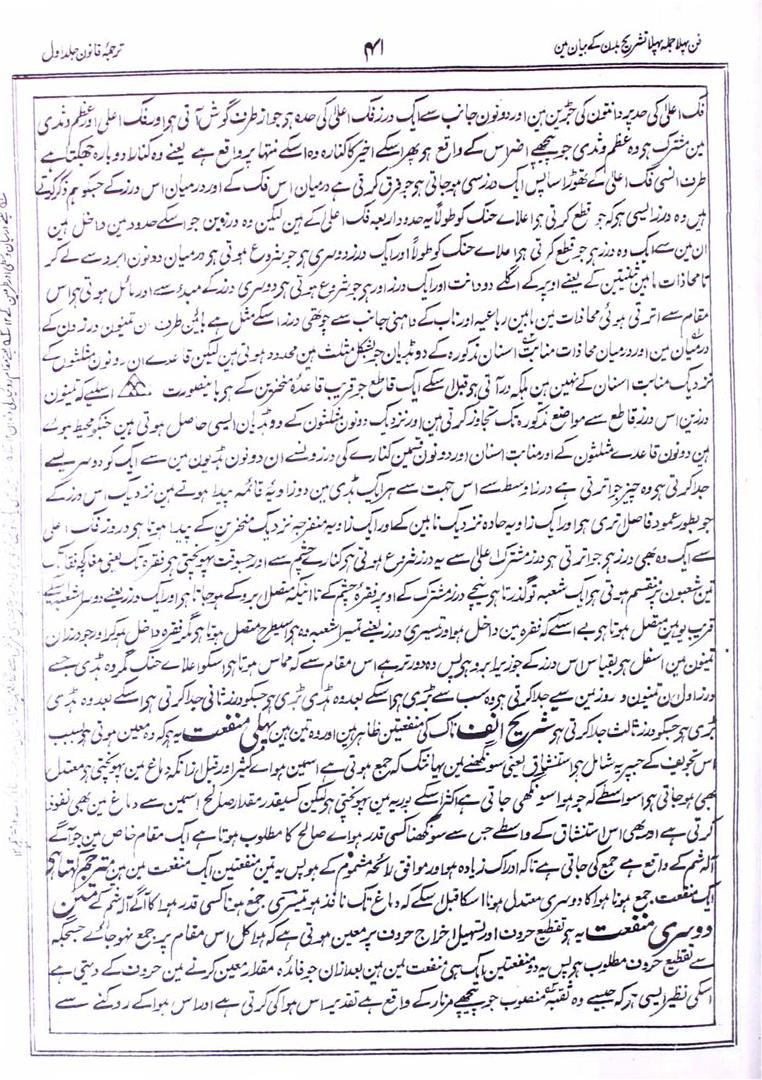 فن پہلا جملہ پہلا تشریح بدن کے بیان مین
۴۱
ترجمۂ قانون جلد اول
فک اعلی کی حد یہ دانتون کی جڑین ہین اور دونون جانب سے ایک درز فک اعلیٰ کی حد ہوجو از طرف گوش آتی ہو اور فک اعلی اور عظم وتدی
مین مشترک ہو وہ عظم وتدی جو پیچھے اضراس کے واقع ہو پھر اسکے اخیر کا کنارہ وہ اسکے منتہا پر واقع ہے یعنے وہ کنارا دوبارہ جھکتا ہے
طرف انسی فک اعلی کے تھوڑا سا پس ایک درز سی ہو جاتی ہو جو فرق کرتی ہے درمیان اس فک کے اور درمیان اس درز کے جسکو ہم ذکر کرتے
ہین وہ درز ایسی ہو کہ جو قطع کرتی ہو اعلاے حنک کو طولاً یہ حدود اربعہ فک اعلیٰ کے ہین لیکن وہ درزین جو اسکے حدود مین داخل ہین
ان مین سے ایک وہ درز ہو جو قطع کرتی ہو اعلاے حنک کو طولاً اور ایک درز دوسری ہو جو شروع ہوتی ہو درمیان دونون ابرو سے لے کر
تا محاذات مابین ثنیتین کے یعنے اوپر کے اگلے دو دانت اور ایک درز اور ہو جو شروع ہوتی ہو دوسری درز کے مبدء سے اور مائل ہوتی ہو اس
مقام سے اترتی ہوئی محاذات مین مابین رباعیہ اور ناب کے داہنی جانب سے چوتھی درز اسکے مثل ہے بائین طرف ان تینون درزون کے
درمیان مین اور درمیان محاذات منابت اسنان مذکورہ کے دو ہڈیان جو بشکل مثلث ہین محدود ہوتی ہین لیکن قاعدے ان دونون مثلثون کے
نزدیک منابت اسنان کے نہین ہین بلکہ در آتی ہو قبل اسکے ایک قاطع جو قریب قاعدۂ منخرین کے ہو باینصورت اسلیے کہ تینون
درزین اس درز قاطع سے مواضع مذکورہ تک تجاوز کرتی ہین اور نزدیک دونون مثلثون کے دو ہڈیان ایسی حاصل ہوتی ہین جنکو محیط ہوے
ہین دونون قاعدے مثلثون کے اور منابت اسنان اور دونون قسمین کنارے کی درزو سے ان دونون ہڈیون مین سے ایک کو دوسرے سے
جدا کرتی ہو وہ چیز جو اترتی ہے درز اوسط سے اس جہت سے ہر ایک ہڈی مین دو زاویۂ قائمہ پیدا ہوتے ہین نزدیک اس درز کے
جو بطور عمود فاصل تری ہو اور ایک زاویہ حادہ نزدیک نابین کے اور ایک زاویہ منفرجہ نزدیک منخرین کے پیدا ہوتا ہو درزوز فک اعلی
سے ایک وہ بھی درز ہو جو اترتی ہو درز مشترک اعلی سے یہ درز شروع ہوتی ہو کنارے چشم سے اور جسوقت پہونچتی ہو نقرہ تک یعنی مغاکچہ
تین شعبون پر منقسم ہوتی ہو ایک شعبہ تو گذرتا ہو نیچے درز مشترک کے اوپر نقرۂ چشم کے تا اینکہ متصل ابرو کے ہو جاتا ہو اور ایک درز یعنے دوسرا شعبہ اسکے
قریب یون ہین متصل ہوتا ہو بے اسکے کہ نقرہ مین داخل ہو اور تیسری درز یعنے تیسرا شعبہ وہ ہو اسیطرح متصل ہوتا ہو مگر نقرہ داخل ہو کر اور جو درز ان
تینون مین اسفل ہو بقیاس اس درز کے جو زیر ابرو ہو پس وہ دور تر ہے اس مقام سے کہ مماس ہوتا ہو اسکو اعلاے حنک مگر وہ ہڈی جسے
درز اول ان تینون درزون مین سے جدا کرتی ہو وہ سب سے بڑی ہو اسکے بعد وہ ہڈی بڑی ہو جسکو درز ثانی جدا کرتی ہو اسکے بعد وہ ہڈی
بڑی ہو جسکو درز ثالث جدا کرتی ہو تشریح انف ناک کی منفعتین ظاہر ہین اور وہ تین ہین پہلی منفعت یہ ہو کہ وہ معین ہوتی ہو بسبب
اس تجویف کے جسپر یہ شامل ہو استنشاق یعنی سونگھنے مین یہانتک کہ جمع ہوتی ہے اسمین ہواے کثیر اور قبل زانکہ دماغ مین پہونچتی ہو معتدل
بھی ہو جاتی ہو اسواسطے کہ جو ہوا سونگھی جاتی ہے اکثر اسکے پوریہ مین پہونچتی ہو لیکن کسیقدر مقدار صالح اسمین سے دماغ مین بھی نفوذ
کرتی ہے اور بھی اس استنشاق کے واسطے جس سے سونگھنا کسی قدر ہواے صالح کا مطلوب ہوتا ہے ایک مقام خاص مین جو آگے
آلہ شم کے واقع ہے جمع کی جاتی ہے تاکہ ادراک زیادہ ہو اور موافق رائحۂ مشموم کے ہو پس یہ تین منفعتین ایک منفعت مین ہین مترجم کہتا ہی
ایک منفعت جمع ہونا ہوا کا دوسری معتدل ہونا اسکا قبل اسکے کہ دماغ تک نافذ ہو تیسری جمع ہونا کسی قدر ہوا کا آگے آلہ شم کے متن
دوسری منفعت یہ ہو تقطیع حروف اور تسہیل اخراج حروف پر معین ہوتی ہے کہ ہوا کل اس مقام پر جمع نہو جائے جسجگہ
سے تقطیع حروف مطلوب ہو پس یہ دو منفعتین ایک ہی منفعت مین ہین بعد ازان جو فائدہ مقدار معین کرنے مین حروف کے دیتی ہے
اسکی نظیر ایسی ہو کہ جیسے وہ ثقبہ منصوب جو پیچھے مزمار کے واقع ہے تقدیر اس ہوا کی کرتی ہے اور اس ہوا کے روکنے سے